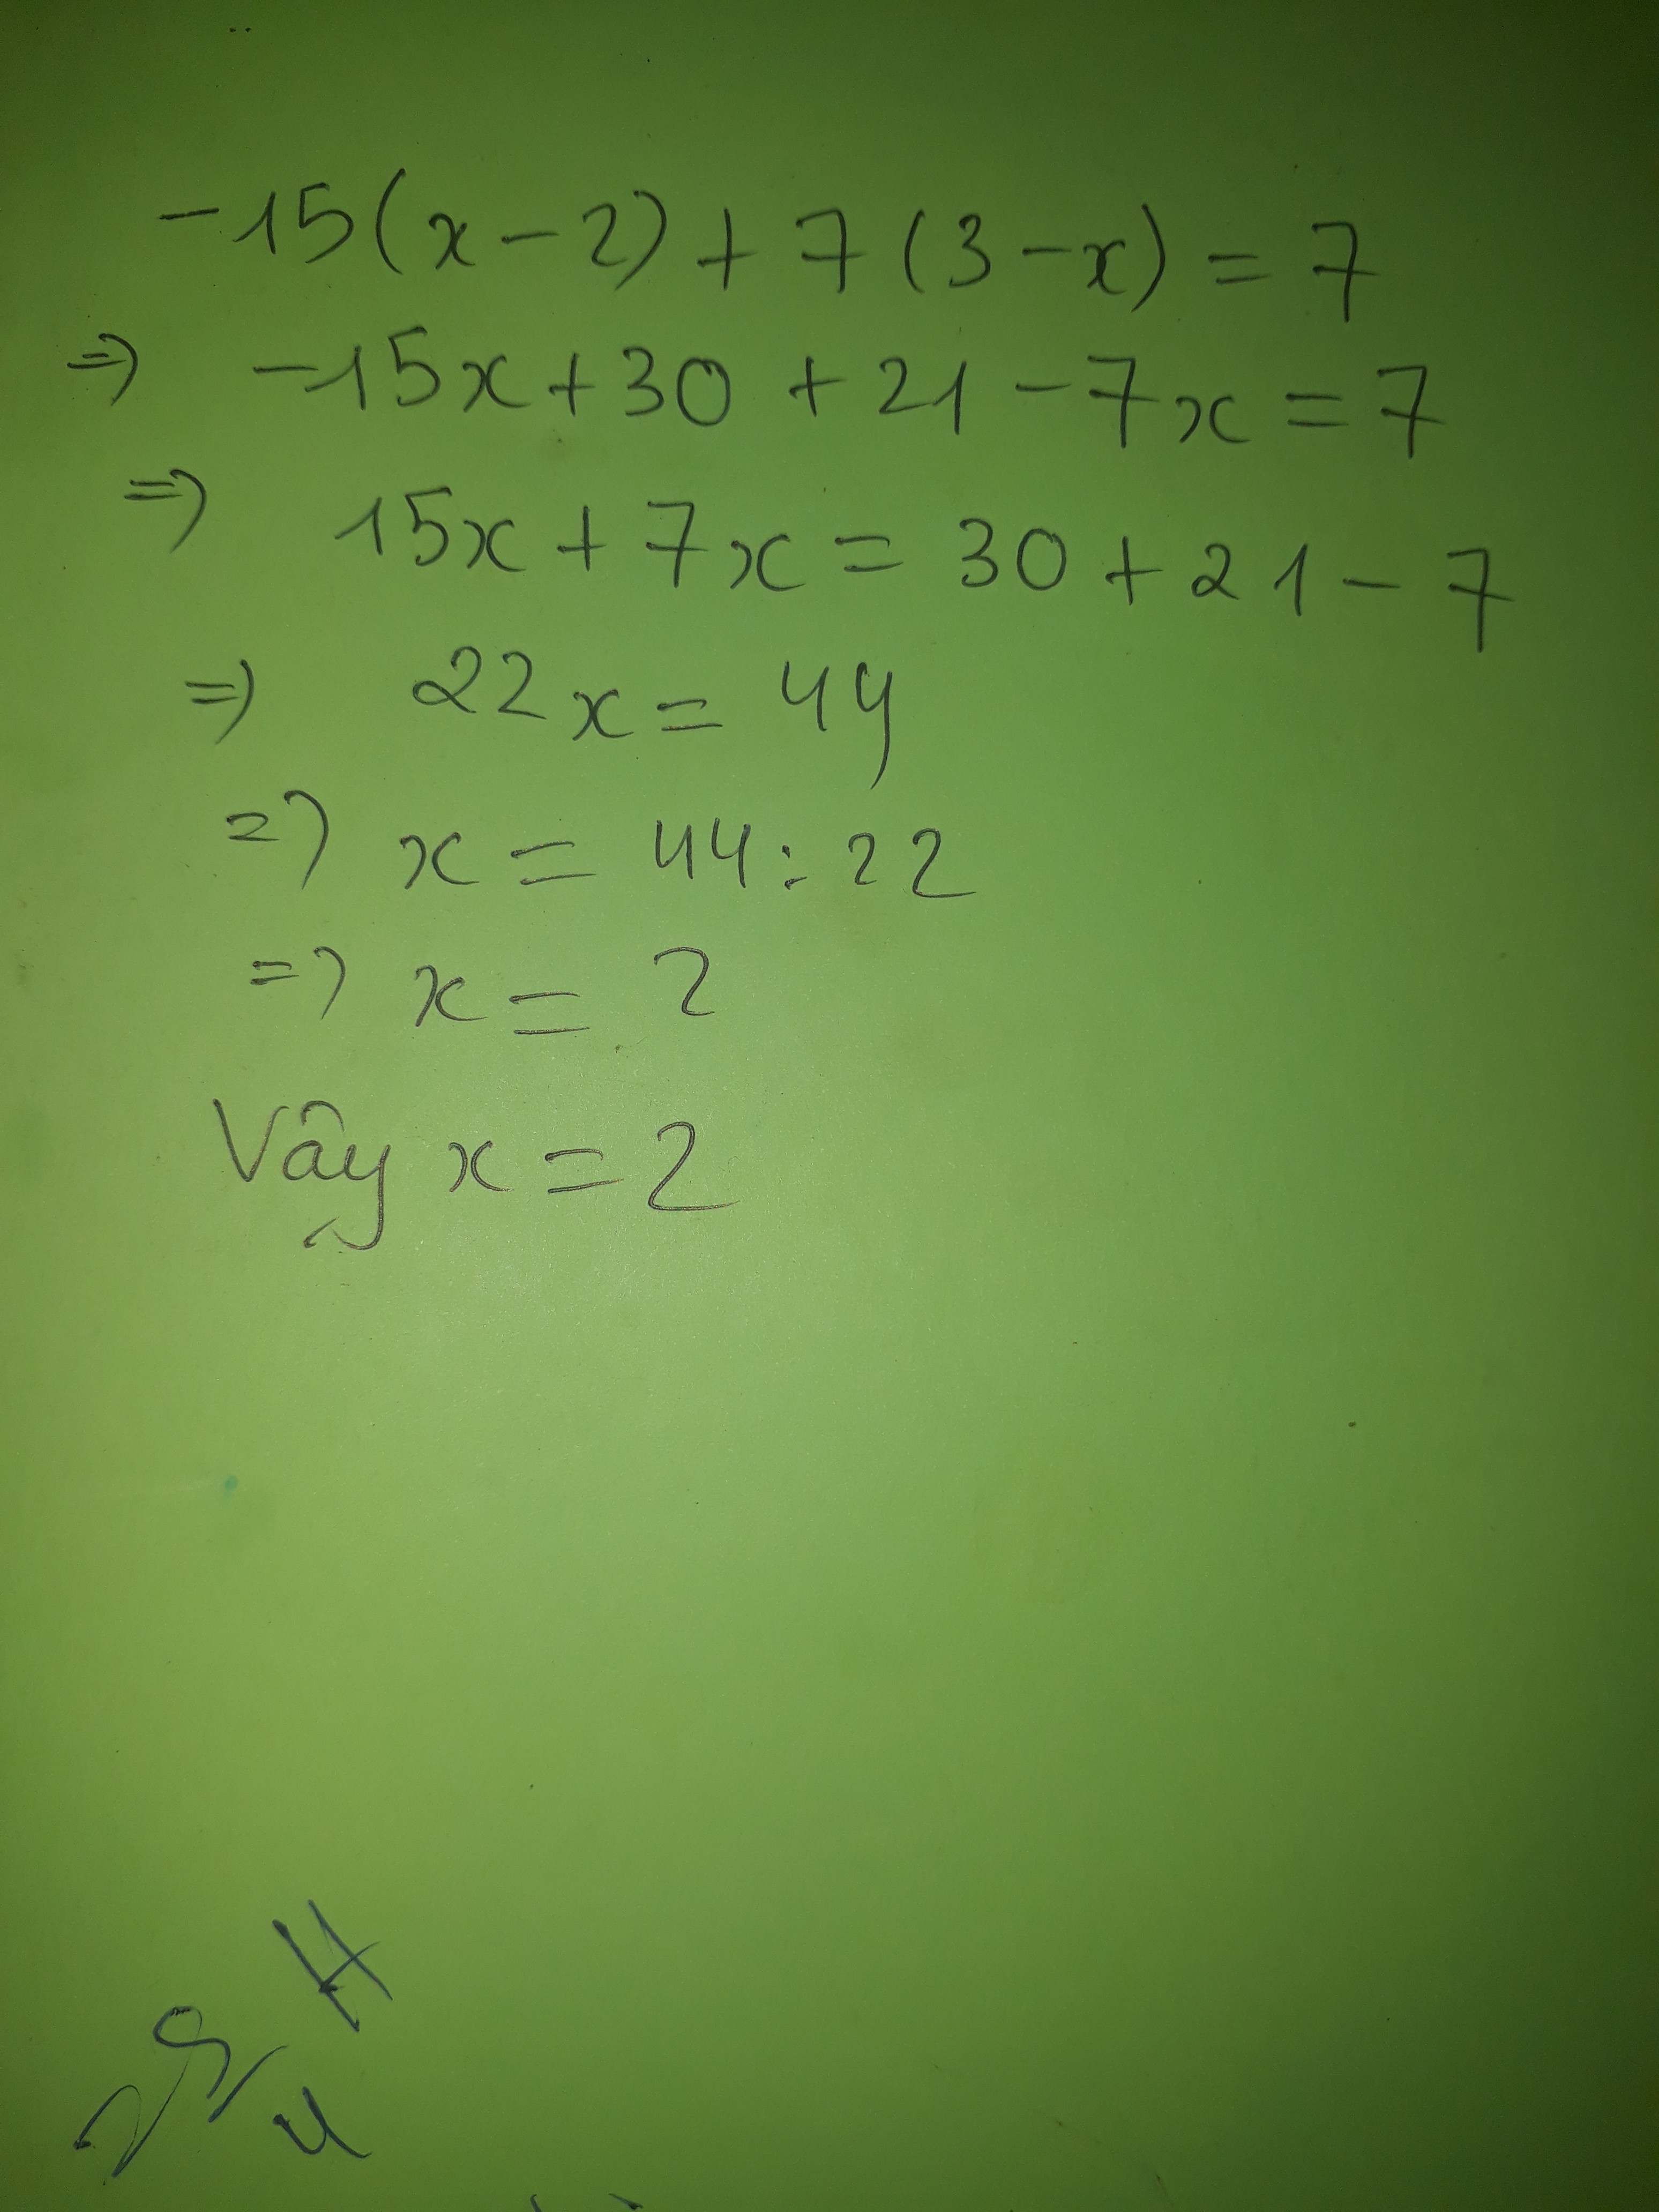 -15(x-2)+7(3-x)=7
=> -15x+30+21-7x=7
=> 15x+7x=30+21-7
=> 22x=44
=> x=44:22
=> x=2
Vậy x=2